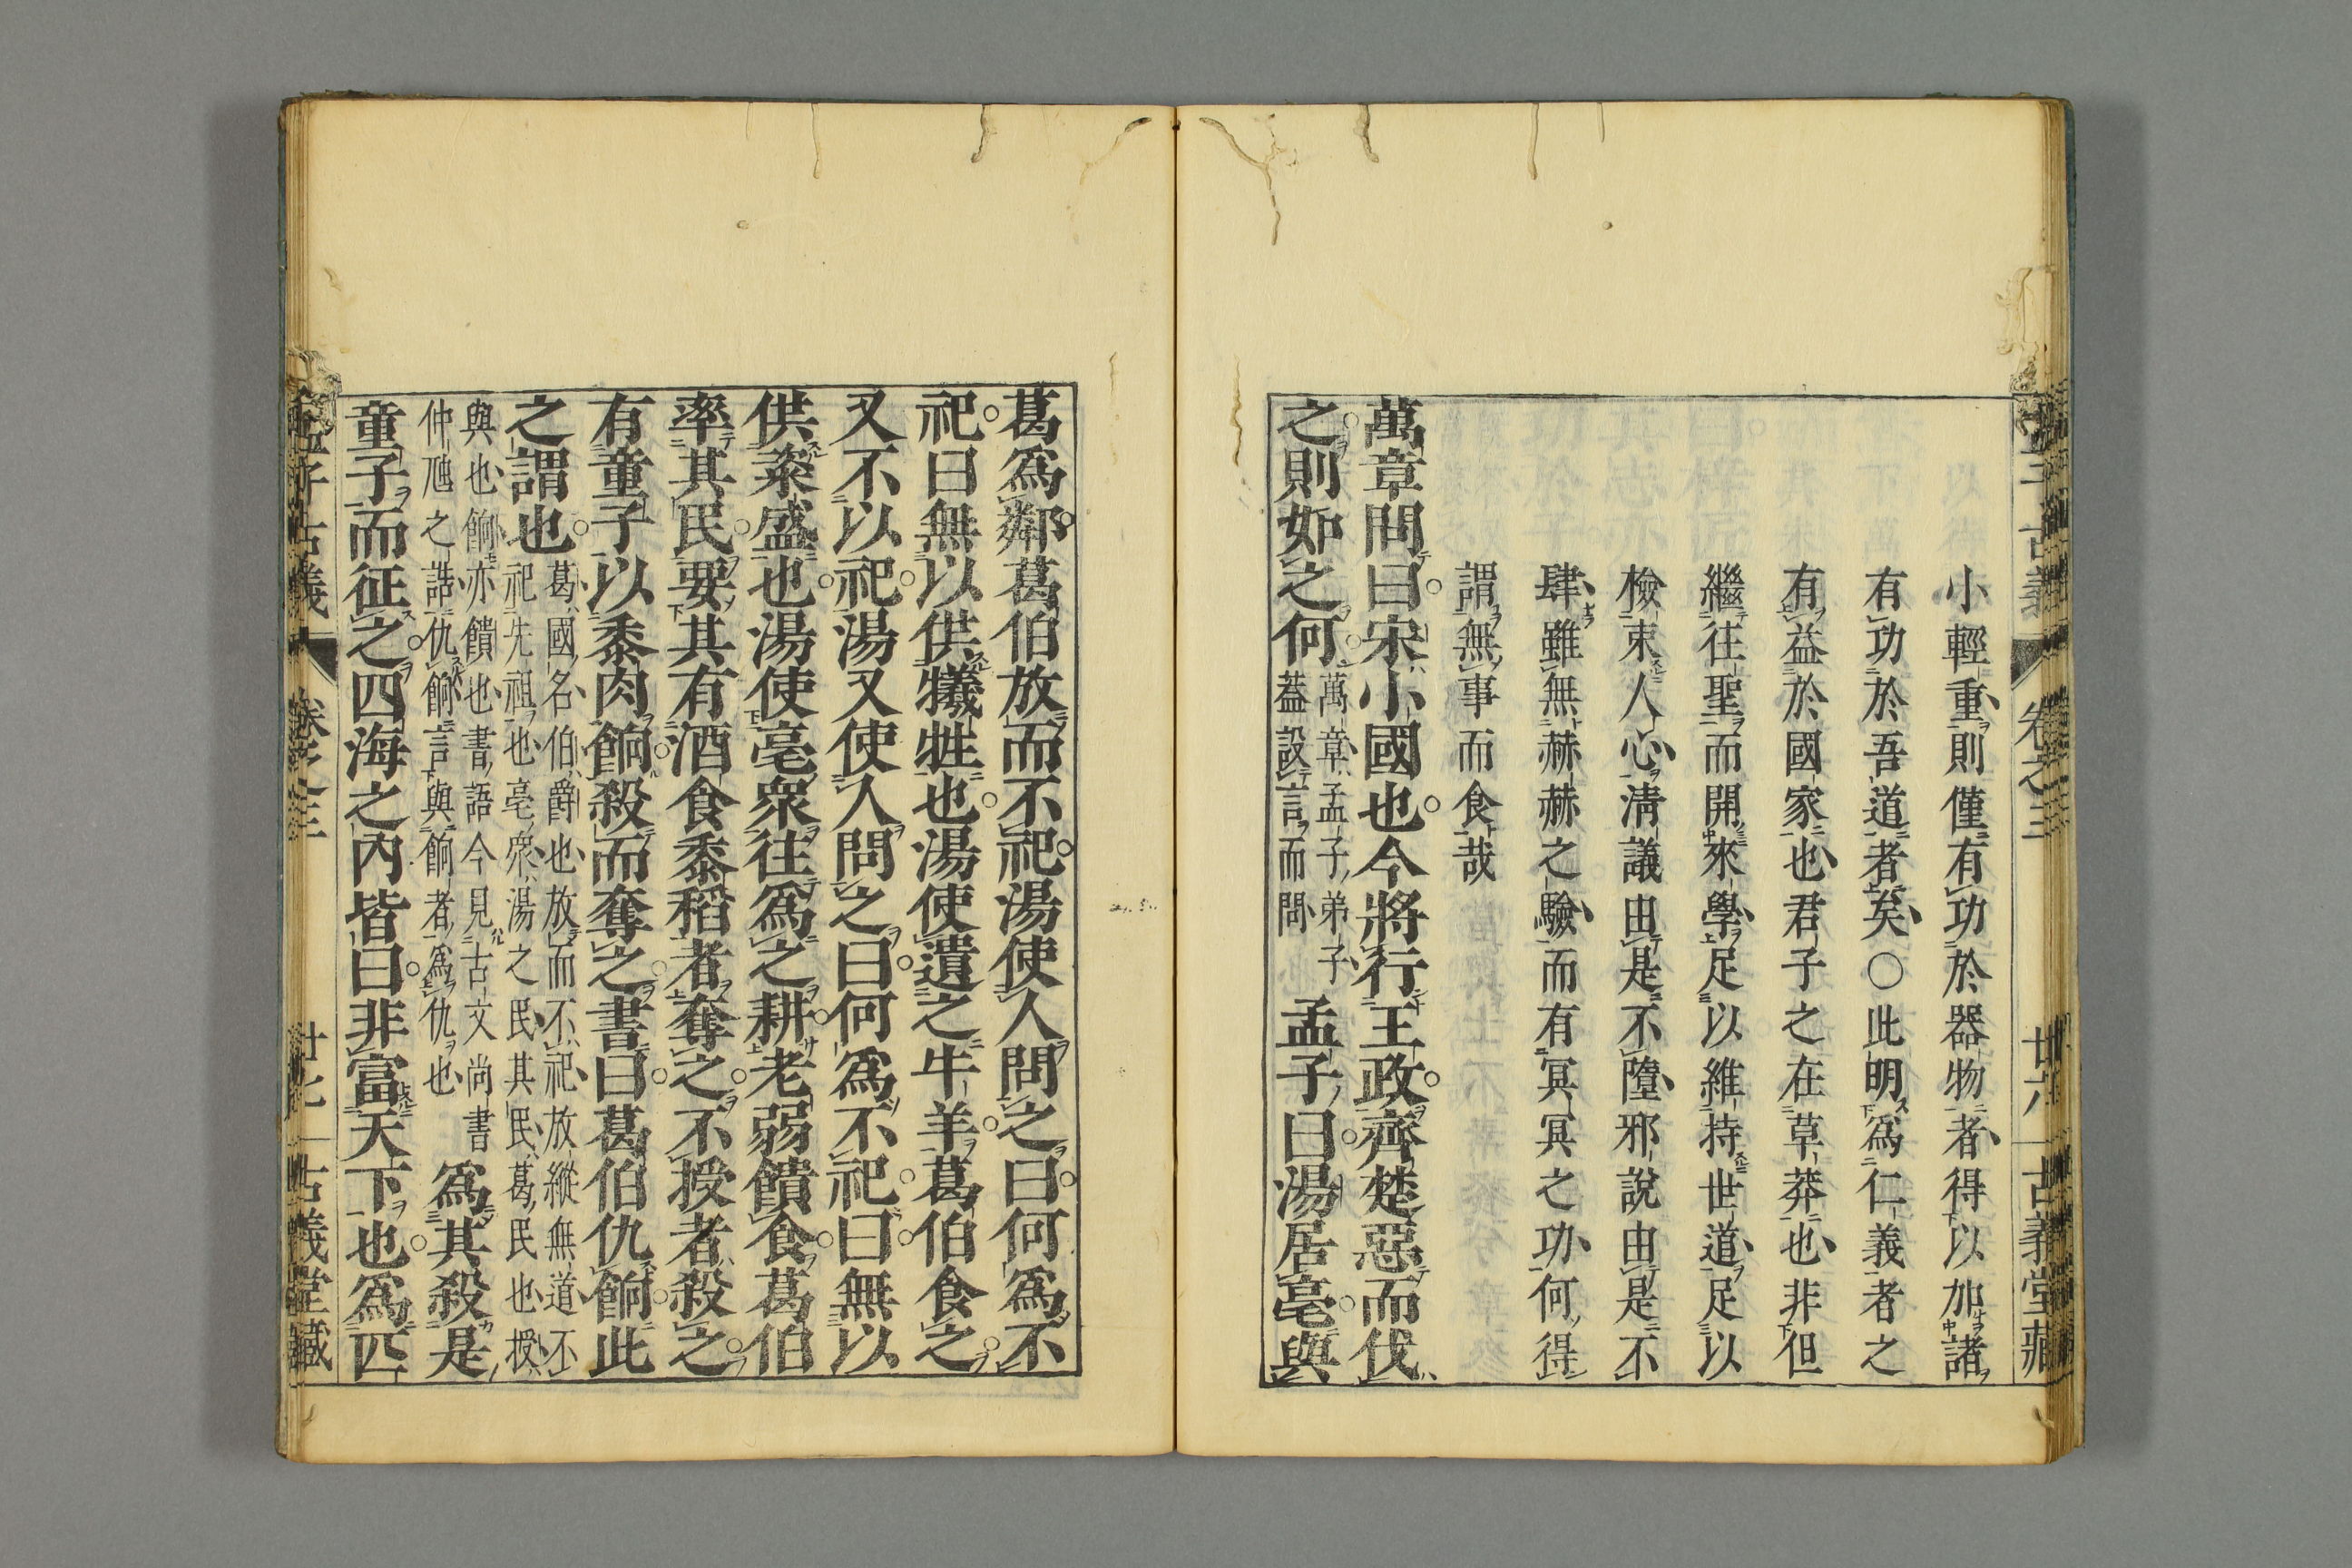 小輕重則僅有功於器物者得以加諸
有功於吾道者矣○此明爲仁義者之
有益於國家也君子之在草莽也非但
繼往聖而開來學足以維持世道足以
檢束人心淸議由是不墮邪說由是不
肆雖無赫赫之驗而有冥冥之功何得
謂無事而食哉
萬章問曰宋小國也今將行王政齊楚惡而伐
之則如之何萬章孟子弟子蓋設言而問孟子曰湯居亳與
古義堂藏
葛爲鄰葛伯放而不祀湯使人問之曰何爲不
祀曰無以供犧牲也湯使遺之牛羊葛伯食之
又不以祀湯又使人問之曰何爲不祀曰無以
供粢盛也湯使亳衆往爲之耕老弱饋食葛伯
率其民要其有酒食黍稻者奪之不授者殺之
有童子以黍肉餉殺而奪之書曰葛伯仇餉此
之謂也葛國名伯爵也放而不祀放縱無道不
祀先祖也亳衆湯之民其民葛民也授
與也餉亦饋也書語今見古文尚書
仲虺之誥仇餉言與餉者爲仇也爲其殺是
童子而征之四海之內皆曰非富天下也爲匹
孟子古義 卷之三 廿七 古義堂藏